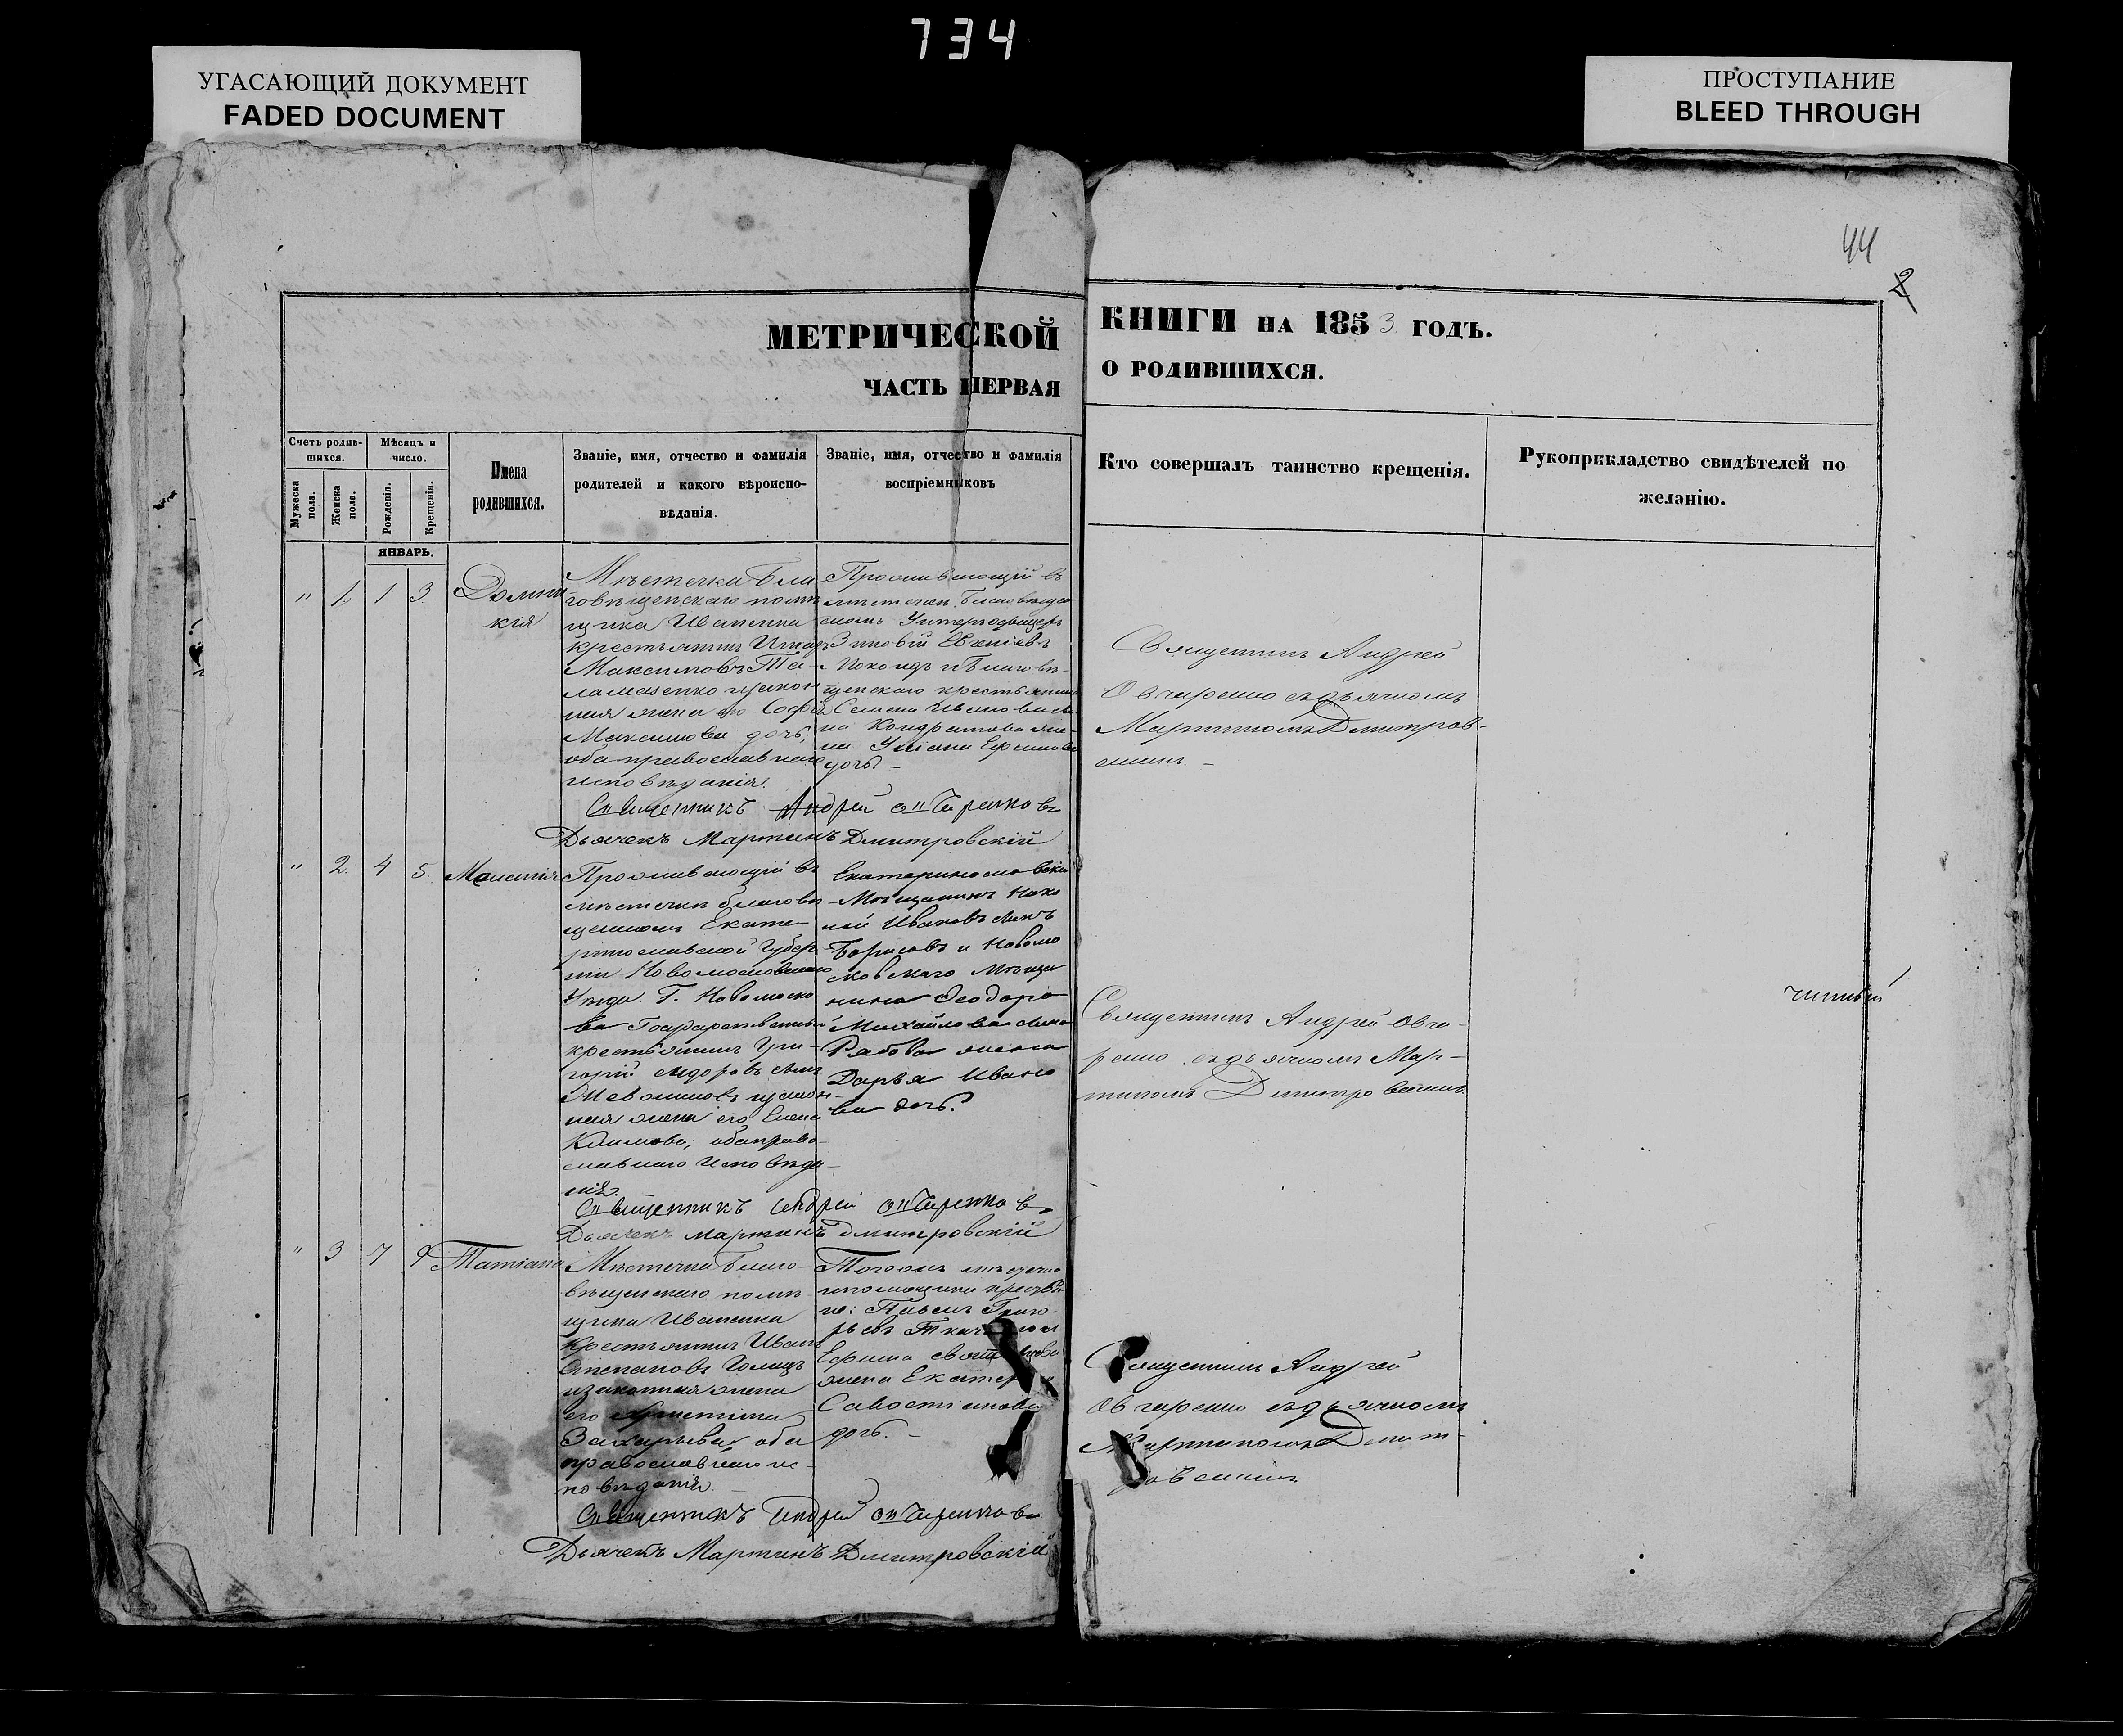 734
УГАСАЮЩИЙ ДОКУМЕНТ
FADED DOCUMENT
ПРОСТУПАНИЕ
BLEED THROUGH
44
2
МЕТРИЧЕСКОЙ
ЧАСТЬ ПЕРВАЯ
КНИГИ НА 1853 ГОДЪ.
О РОДИВШИХСЯ.
Счетъ родив-
шихся.
Мужеска
пола.
Женска
пола.
Мѣсяцъ и
число.
Рожденія.
Крещенія.
Имена
родившихся.
Званіе, имя, отчество и фамилія
родителей и какого вѣроиспо-
вѣданія.
Званіе, имя, отчество и фамилія
воспріемниковъ
Кто совершалъ таинство крещенія.
Рукопрккладство свидѣтелей по
желанію.
ЯНВАРЬ.
" 1. 1 3.
Домни
кія
Мѣстечка Бла
говѣщенскаго помѣ
щика Иваненка
крестьянинъ
Максимовъ
законн
ная жена его Софія
Максимова дочь;
оба православнаго
исповѣданія.
Проживающій въ
мѣстечкѣ Благовѣщен
скомъ
Зиновій
и Благовѣ-
щенскаго крестьянина
Семена Иванова сы
на Кондратова же-
на Уліана Ефимова
дочь. –
Священникъ Андрей
Овчаренко съ дьячкомъ
Мартиномъ Дмитров-
скимъ. –
Священникъ Андрей Овчаренковъ
Дьячекъ Мартинъ Дмитровскій
" 2. 4 5.
Проживающій въ
мѣстечкѣ благовѣ
щенскомъ Екате-
ринославской Губер
ніи Новомосковскаго
Уѣзда Г. Новомоско
вка Государственный
крестьянинъ Гри-
горій Сидоровъ сынъ
законн
ная жена его Елена
Климова; оба право-
славнаго исповѣда-
нія.
Екатеринославскій
Мѣщанинъ
Ивановъ сынъ
Борисовъ и Новомо
сковскаго Мѣща
нина Ѳеодора
Михайлова сына
Рябова жена
Дарья Ивано
ва дочь.
Священникъ Андрей Овча-
ренко съ дьячкомъ Мар-
тиномъ Дмитровскимъ
Священникъ Андрей Овчаренковъ
Дьячекъ Мартинъ Дмитровскій
" 3 7 9
Татіана
Мѣстечка Благо-
вѣщенскаго помѣ-
щика Иваненка
крестьянинъ Иванъ
Степановъ
и законная жена
его Христина
Захарьева, оба
православнаго ис-
повѣданія. –
Тогожъ мѣстечка
и помѣщика крестья
не: Павелъ Григо
рьевъ
Ефима
жена Екатерина
Савостіанова
дочь. –
Священникъ Андрей
Овчаренко съ дьячкомъ
Мартиномъ Дмит-
ровскимъ
Священникъ Андрей Овчаренковъ
Дьячекъ Мартинъ Дмитровскій